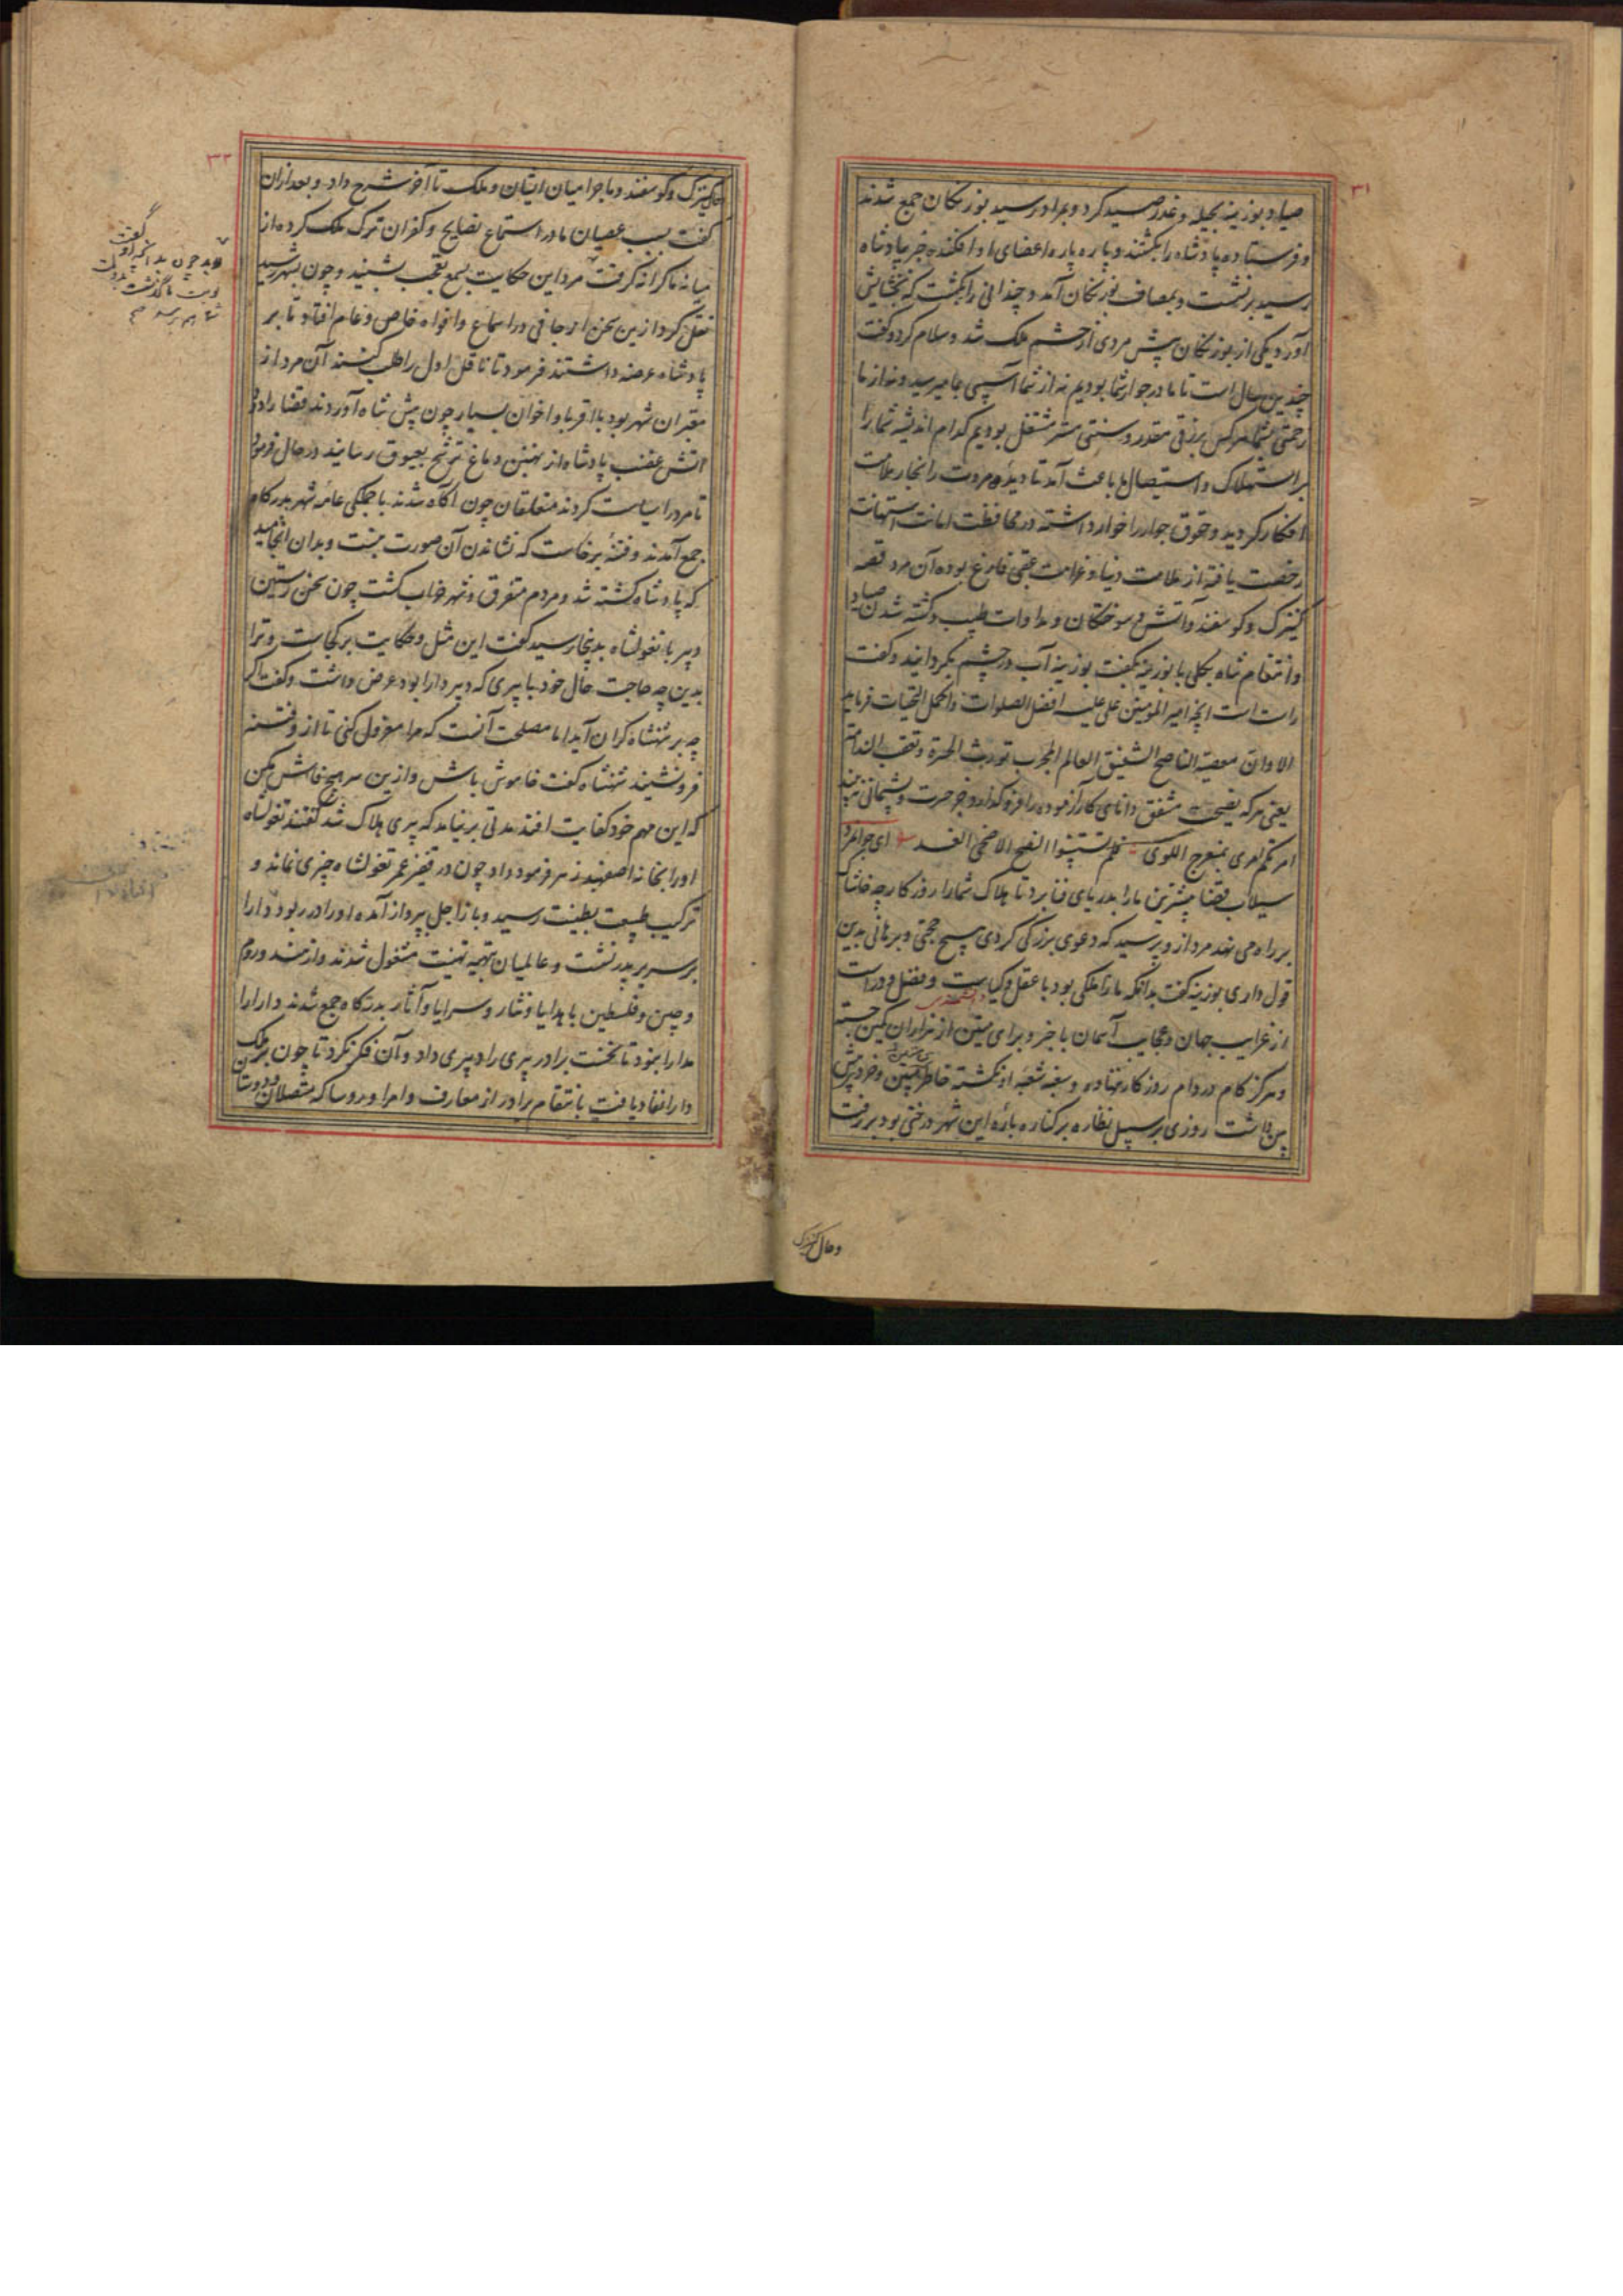 ۳۱
صیاد بوزینه بحیله و غدر صید کرد و بمراد رسید بوزنکان جمع شدند
و فرستاده پادشاه را بکشتند و پاره پاره اعضای او افکنده خبر پادشاه
رسید برنشست و بمصاف بوزنکان آمد و چندانی را بکشت که بخشایش
آورد یکی از بوزنکان پیش مردی از حشم ملک شد و سلام کرد و کفت
چندین سال است تا ما در جوار شما بودیم نه از شما آسیبی بما میرسید و نه از ما
زحمتی بشما هر کس برزقی مقدر و سنتی مشتغل بودیم کدام اندیشه شما را
بر استهلاک و استیصال ما باعث آمد تا دیده مروت را بخار ملامت
افکار کردید و حقوق جوار را خوار داشته در محافظت امانت استهانت
رخصت یافته از ملامت دنیا و غرامت عقبی فارغ بوده آن مرد قصه
کنیزک و کوسفند و آتش و سوختکان و مداوات طبیب و کشته شدن صیاد
و انتقام شاه بکلی با بوزینه بکفت بوزینه آب در چشم بکردانید و کفت
راست است انچه امیر المومنین علی علیه افضل الصلوات و اکمل التحیات فرماید
الا و ان معصیة الناصح الشفیق العالم المجرب تورث الحسرة و تعقب الندامة
یعنی هر که نصیحت مشفق دانای کارآزموده را فرو گذارد جز حسرت و پشیمانی نبیند
امرتکم امری بمنعرج اللوی فلم تستبینوا النصح الا ضحی الغد ای جوانمرد
سیلاب قضا پیشترین ما را بدریای فنا برد تا هلاک شما را روزکار چه خاشاک
بر راه می نهد مرد از و پرسید که دعوی بزرکی کردی هیچ حجتی و برهانی بدین
قول داری بوزینه کفت بدانکه ما را ملکی بود با عقل و کیاست و فضل و دراست
از غرایب جهان و عجایب آسمان با خبر و برای متین از هزاران کمین جسته
و هرکز کام در دام روزکار ننهاده و سغبه شعبه او نکشته خاطر و خرد پیش
بین داشت روزی بر سبیل نظاره بر کناره باره این شهر درختی بود بر رفت
و حال کنیزک
۳۲
حال کنیزک و کوسفند و ماجرا میان ایشان و ملک تا آخر شرح داد و بعد ازان
کفت بسبب عصیان ما در استماع نصایح و کفران ترک ملک کرده از
میانه ما کرانه کرفت مرد این حکایت بسمع تعجب بشنید و چون بشهر رسید
نقل کرد ازین سخن ارجافی در اسماع و افواه خاص و عام افتاد تا بر
پادشاه عرضه داشتند فرمود تا ناقل اول را طلب کنند آن مرد از
معتبران شهر بود با اقربا و اخوان بسیار چون پیش شاه آوردند قضا را دود
آتش غضب پادشاه از نهنبن دماغ ترشح بعیوق رسانید در حال فرمود
تا مرد را سیاست کردند متعلقان چون آکاه شدند با جملکی عامه شهر بدرکاه
جمع آمدند و فتنهٔ برخاست که نشاندن آن صورت نبست و بدان انجامید
که پادشاه کشته شد و مردم متفرق و شهر خراب کشت چون سخن رستین
دبیر با تغولشاه بدینجا رسید کفت این مثل و حکایت بر کجاست و ترا
بدین چه حاجت حال خود با پیری که دبیر دارا بود عرض داشت و کفت اکر
چه بر شهنشاه کران آید اما مصلحت آنست که مرا معزول کنی تا از و فتنه
فرو نشیند شهنشاه کفت خاموش باش و ازین سر هیچ فاش مکن
که این مهم خود کفایت افتد مدتی برنیامد که پیری هلاک شد کفتند تغولشاه
او را بخانه اصفهبد زهر فرمود داد چون در قفیز عمر تغولشاه چیزی نماند و
ترکیب طبیعت بطینت رسید و باز اجل بپرواز آمده او را در ربود دارا
بر سریر پدر نشست و عالمیان بتهیه تهنیت مشغول شدند و از هند و روم
و چین و فلسطین با هدایا و نثار و سرایا و آثار بدرکاه جمع شدند دارا را
مدارا نبود تا نخست برادر پیری را دبیری داد و آن فکر نکرد تا چون بر ملک
دارا نفاد یافت بانتقام برادر از معارف و امرا و روسا که متصلان و دوستان
چون بدانجا
نوبت ما گذشت بدولت
شما هم برسد